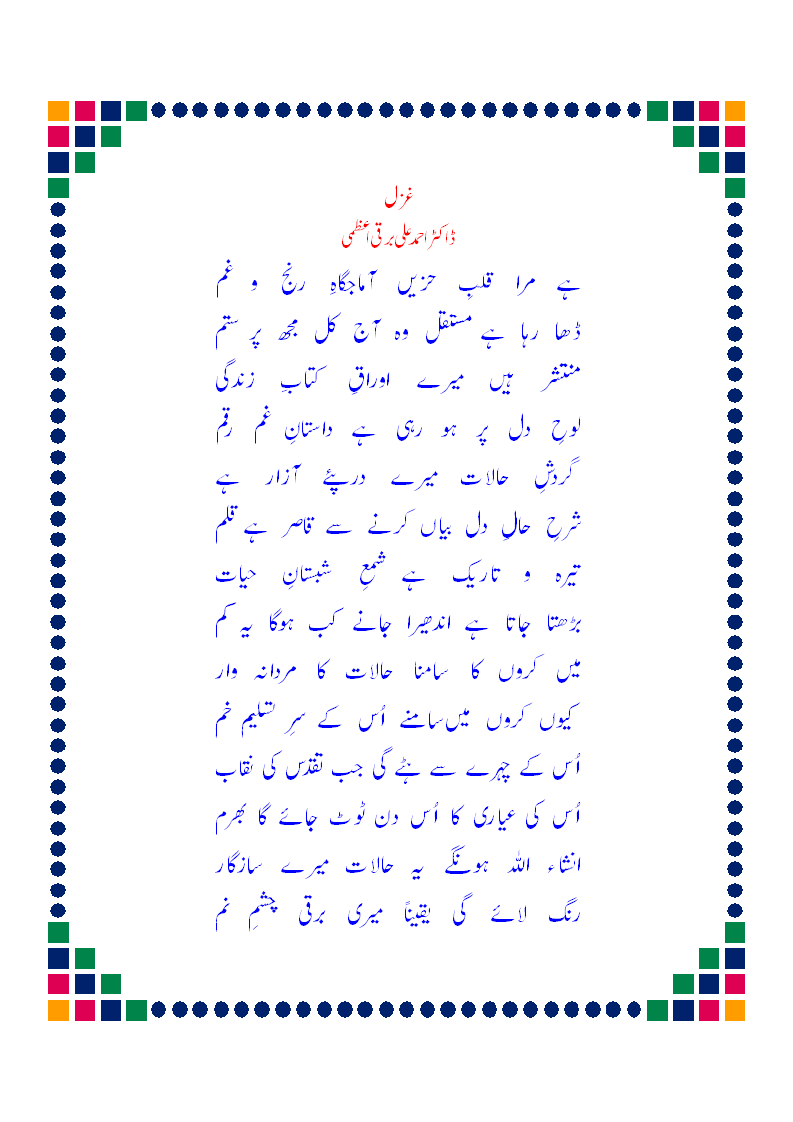 غزل
ڈاکٹر احمد علی برقی اعظمی
ہے مرا قلبِ حزیں آماجگاہِ رنج و غم
ڈھا رہا ہے مستقل وہ آج کل مجھ پر ستم
منتشر ہیں میرے اوراقِ کتابِ زندگی
لوحِ دل پر ہو رہی ہے داستانِ غم رقم
گردشِ حالات میرے درپئے آزار ہے
شرحِ حالِ دل بیاں کرنے سے قاصر ہے قلم
تیرہ و تاریک ہے شمعِ شبستانِ حیات
بڑھتا جاتا ہے اندھیرا جانے کب ہوگا یہ کم
میں کروں کا سامنا حالات کا مردانہ وار
کیوں کروں میں سامنے اُس کے سرِ تسلیم خم
اُس کے چہرے سے ہٹے گی جب تقدّس کی نقاب
اُس کی عیاری کا اُس دن ٹوٹ جائے گا بھرم
انشاء اللہ ہونگے یہ حالات میرے سازگار
رنگ لائے گی یقیناً میری برقی چشمِ نم